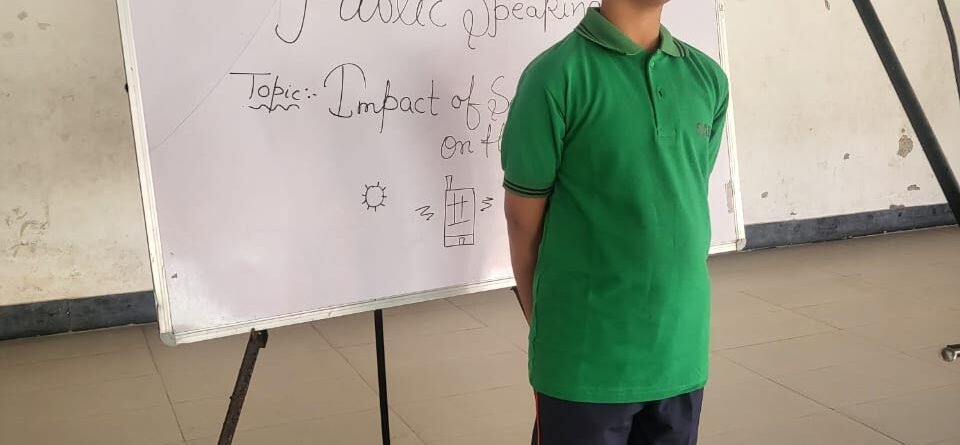 Public Speaking
Topic:- Impact of
on